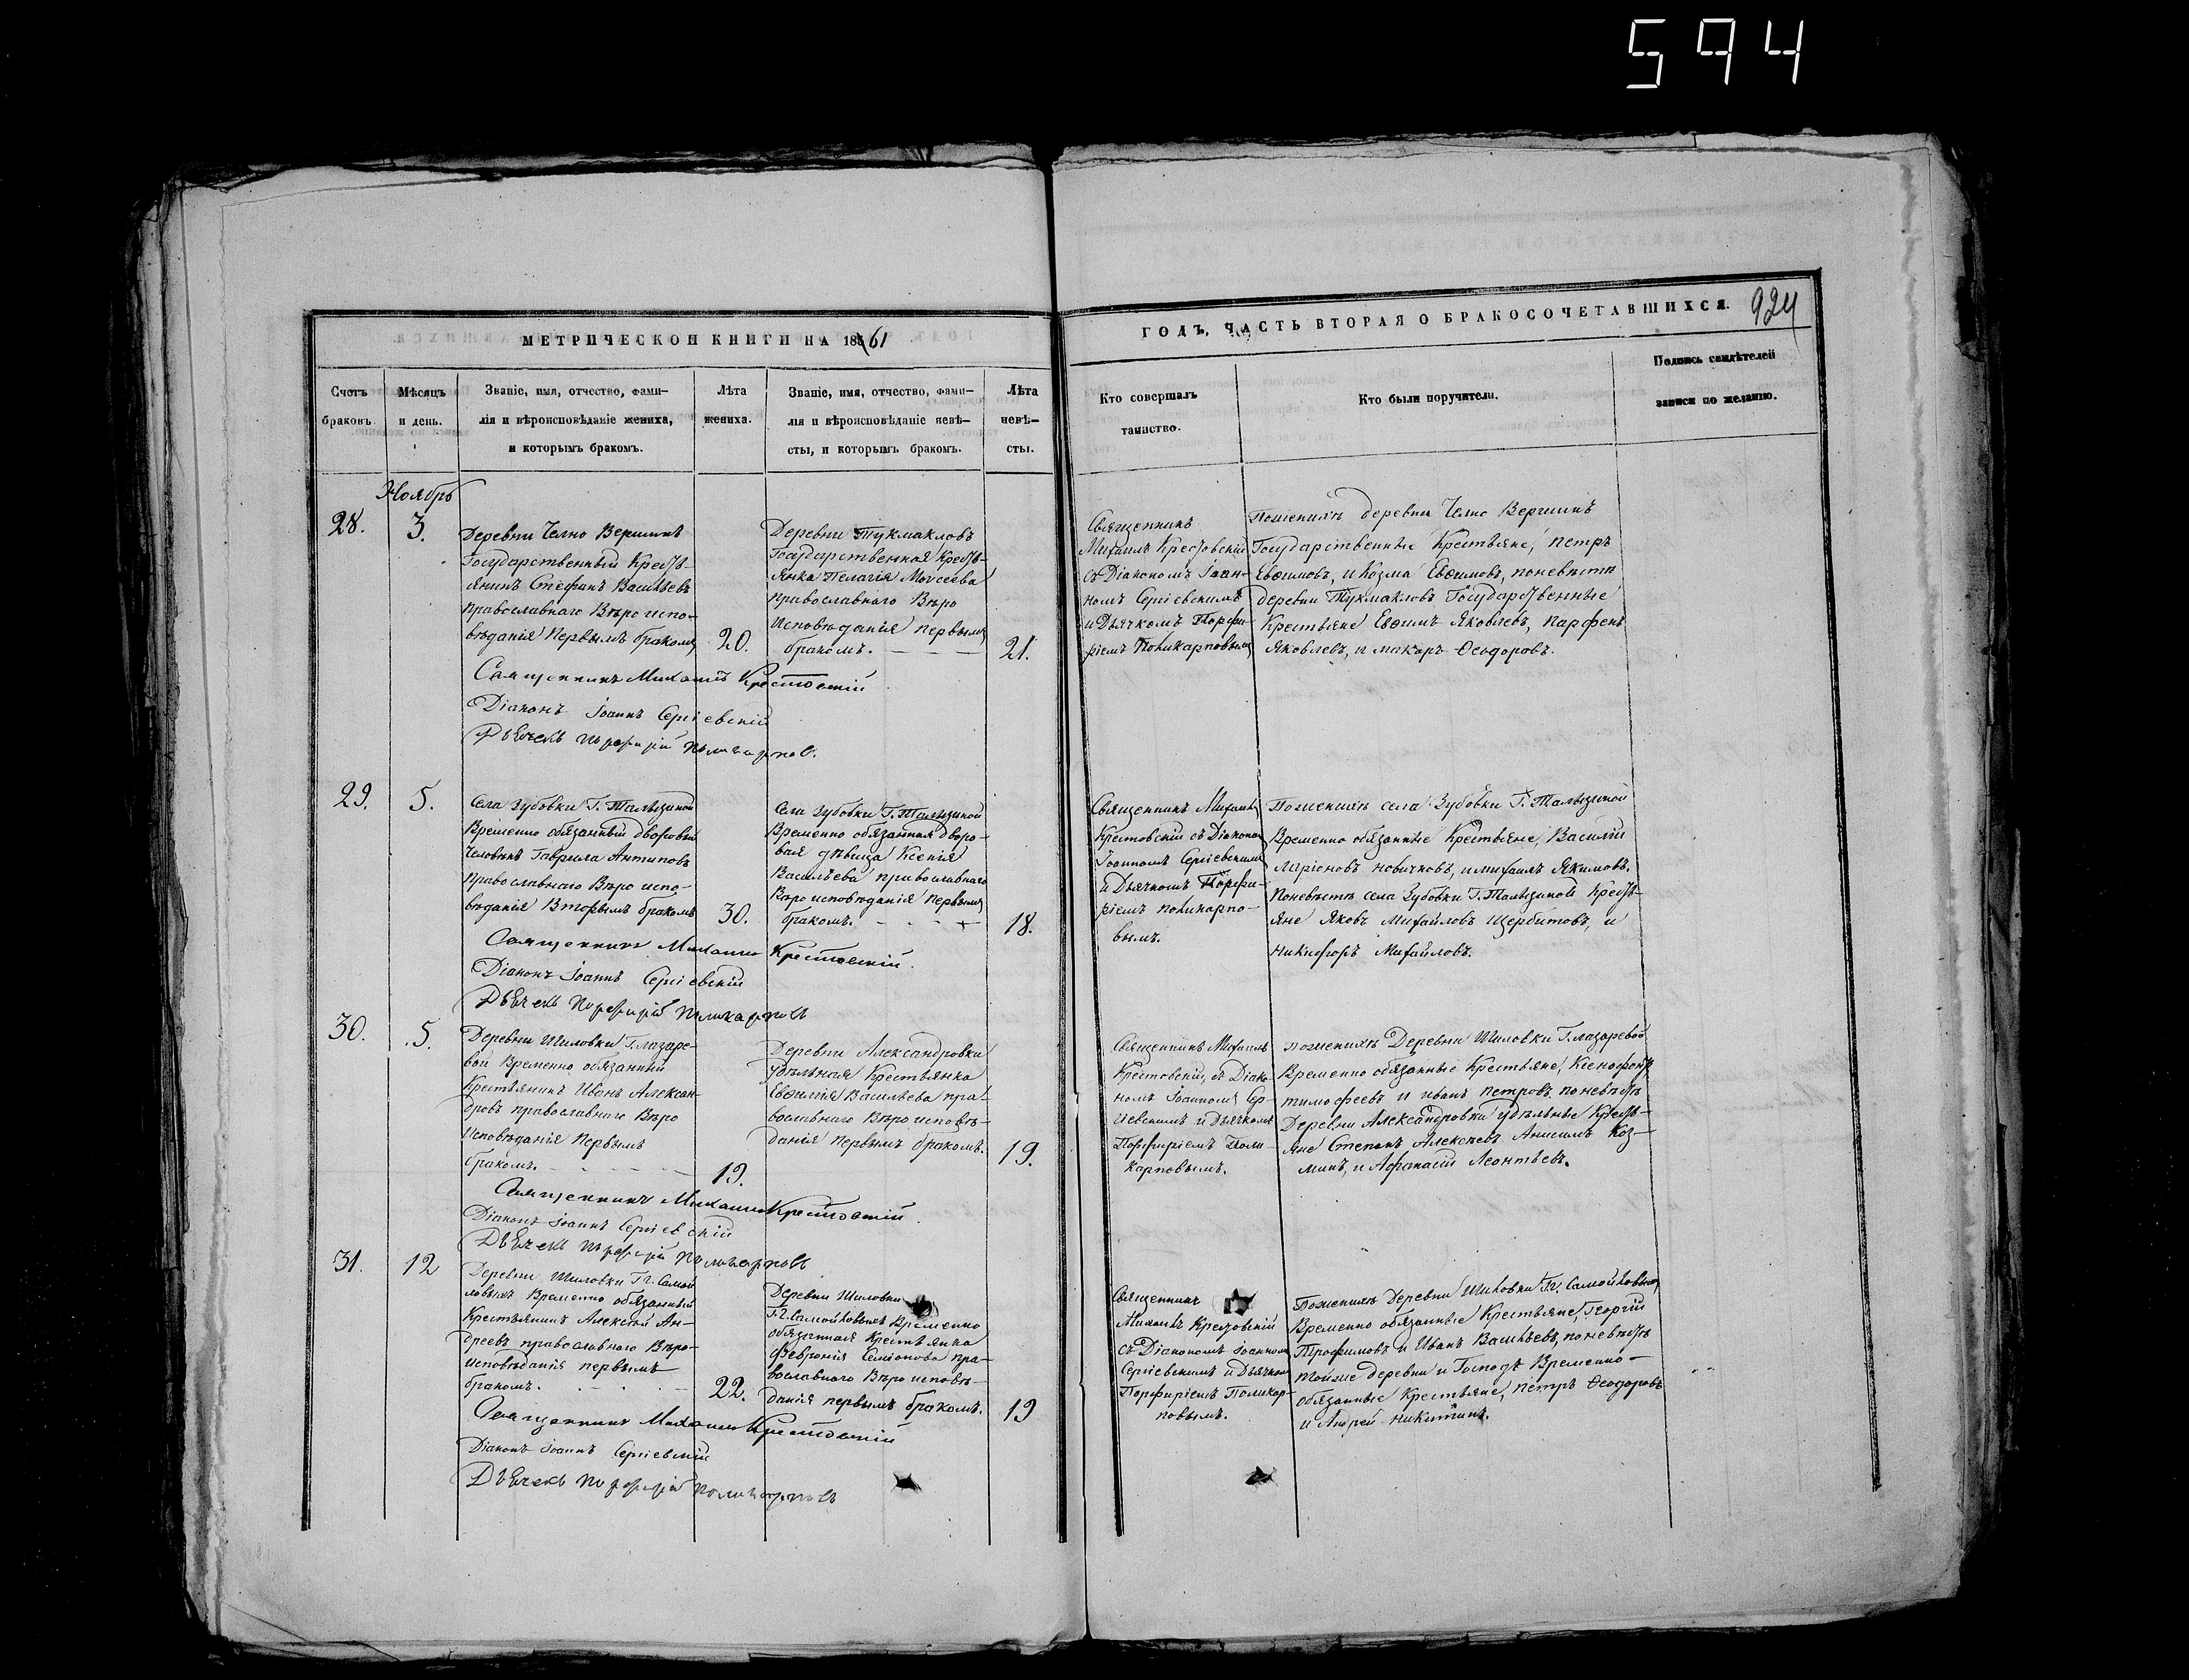 594
МЕТРИЧЕСКОЙ КНИГИ НА 1861
ГОДЪ, ЧАСТЬ ВТОРАЯ О БРАКОСОЧЕТАВШИХСЯ.
924
Счетъ
браковъ
Мѣсяцъ
и день.
Званіе, имя, отчество, фами-
лія и вѣроисповѣданіе жениха,
и которымъ бракомъ.
Лѣта
жениха.
Званіе, имя, отчество, фами-
лія и вѣроисповѣданіе невѣ-
сты, и которымъ бракомъ.
Лѣта
невѣ-
сты.
Кто совершалъ
таинство.
Кто были поручители.
Подпись свидѣтелей
записи по желанію.
Ноябрь
28.
3.
Деревни Челно Вершинъ
Государственный Кресть-
янинъ Стефанъ Васильевъ
православнаго Вѣро испо-
вѣданія Первымъ бракомъ
20.
Деревни Тукмакловъ
Государственная Кресть-
янка Пелагія Моисеева
православнаго Вѣро
Исповѣданія первымъ
бракомъ.
21.
Священникъ
Михаилъ Крестовскій
съ Діакономъ Іоан-
номъ Сергіевскимъ
и Дьячкомъ Порфи-
ріемъ Поликарповымъ
Поженихѣ деревни Челно Вершинъ
Государственные Крестьяне, Петръ
Евѳимовъ, и Козма Евѳимовъ, поневѣстѣ
деревни Тукмакловъ Государственные
Крестьяне Евѳимъ Яковлевъ, Парфенъ
Яковлевъ, и Макаръ Ѳеодоровъ.
Священникъ Михаилъ Крестовскій
Діаконъ Іоаннъ Сергіевскій
Дьячекъ Порфирій Поликарповъ.
29.
5.
Села Зубовки Г. Талызиной
Временно обязанный дворовый
человѣкъ Гаврила Антиповъ
православнаго Вѣро испо-
вѣданія Вторымъ бракомъ
30.
Села Зубовки Г. Талызиной
Временно обязанная дворо-
вая дѣвица Ксенія
Васильева православнаго
Вѣро исповѣданія Первымъ
бракомъ.
18.
Священникъ Михаилъ
Крестовскій съ Діакономъ
Іоанномъ Сергіевскимъ
и Дьячкомъ Порфи-
ріемъ Поликарпо-
вымъ.
Поженихѣ села Зубовки Г. Талызиной
Временно обязанные Крестьяне, Василій
Ларіоновъ Новичковъ, и Михаилъ Якимовъ.
Поневѣстѣ села Зубовки Г. Талызиной Кресть-
яне Яковъ Михайловъ Щербитовъ, и
Никифоръ Михайловъ.
Священникъ Михаилъ Крестовскій.
Діаконъ Іоаннъ Сергіевскій
Дьячекъ Порфирій Поликарповъ
30.
5.
Деревни Шиловки Г. Лазаре-
вой Временно обязанный
Крестьянинъ Иванъ Алексан-
дровъ православнаго Вѣро
Исповѣданія Первымъ
бракомъ.
19.
Деревни Александровки
Удѣльная Крестьянка
Евѳимія Васильева пра-
вославнаго Вѣро исповѣ-
данія первымъ бракомъ.
19.
Священникъ Михаилъ
Крестовскій, съ Діако-
номъ Іоанномъ Сер-
гіевскимъ и Дьячкомъ
Порфиріемъ Поли-
карповымъ.
Поженихѣ Деревни Шиловки Г. Лазаревой
Временно обязанные Крестьяне, Ксенофонтъ
Тимофеевъ и Иванъ Петровъ, поневѣстѣ
Деревни Александровки удѣльные Кресть-
яне Степанъ Алексѣевъ Анисимъ Коз-
минъ, и Афанасій Леонтьевъ.
Священникъ Михаилъ Крестовскій.
Діаконъ Іоаннъ Сергіевскій
Дьячекъ Порфирій Поликарповъ
31.
12
Деревни Шиловки Гг. Самой
ловыхъ Временно обязанный
Крестьянинъ Алексѣй Ан-
дреевъ православнаго Вѣро-
исповѣданія первымъ
бракомъ.
22.
Деревни Шиловки
Гг. Самойловыхъ Временно
обязанная Крестьянка
Февронія Семіонова пра-
вославнаго Вѣро исповѣ-
данія первымъ бракомъ.
19
Священникъ
Михаилъ Крестовскій
съ Діакономъ Іоанномъ
Сергіевскимъ и Дьячкомъ
Порфиріемъ Поликар-
повымъ.
Поженихѣ Деревни Шиловки Гг. Самойловыхъ,
Временно обязанные Крестьяне, Георгій
Трофимовъ и Иванъ Васильевъ, поневѣстѣ
тойже деревни и Господъ Временно-
обязанные Крестьяне, Петръ Ѳеодоровъ
и Андрей Никитинъ.
Священникъ Михаилъ Крестовскій
Діаконъ Іоаннъ Сергіевскій
Дьячекъ Порфирій Поликарповъ